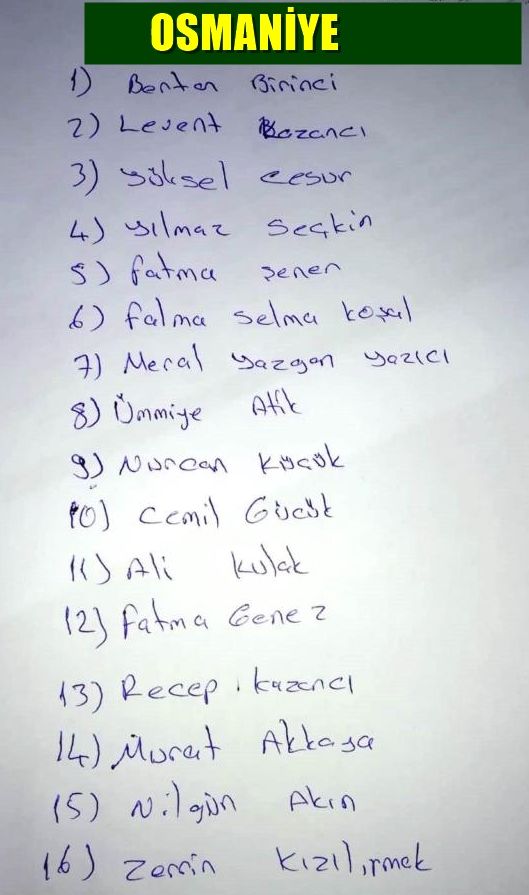 OSMANİYE
1) Bentan Birinci
2) Levent Kozancı
3) Yüksel Cesur
4) Yılmaz Seçkin
5) Fatma Şener
6) Fatma Selma Koşal
7) Meral Yazgan Yazıcı
8) Ümmiye Atik
9) Nurcan Küçük
10) Cemil Gücük
11) Ali Kulak
12) Fatma Genez
13) Recep Kazancı
14) Murat Akkaya
15) Nilgün Akın
16) Zerrin Kızılırmak